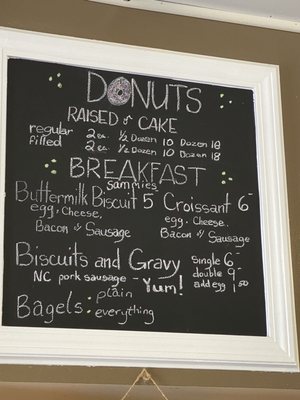 DONUTS
RAISED or CAKE
regular 2 ea. ½ Dozen 10 Dozen 18
filled 2 ea. ½ Dozen 10 Dozen 18
BREAKFAST
sammies
Buttermilk Biscuit 5 Croissant 6-
egg. Cheese, egg. Cheese,
Bacon or Sausage Bacon or Sausage
Biscuits and Gravy single 6-
NC pork sausage - Yum! double 9-
add egg 1 50
Bagels: plain
everything